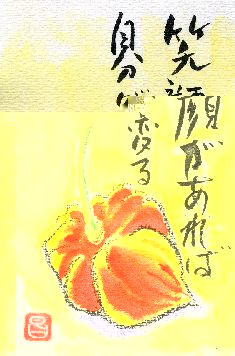 笑顔があれば
自分が変る